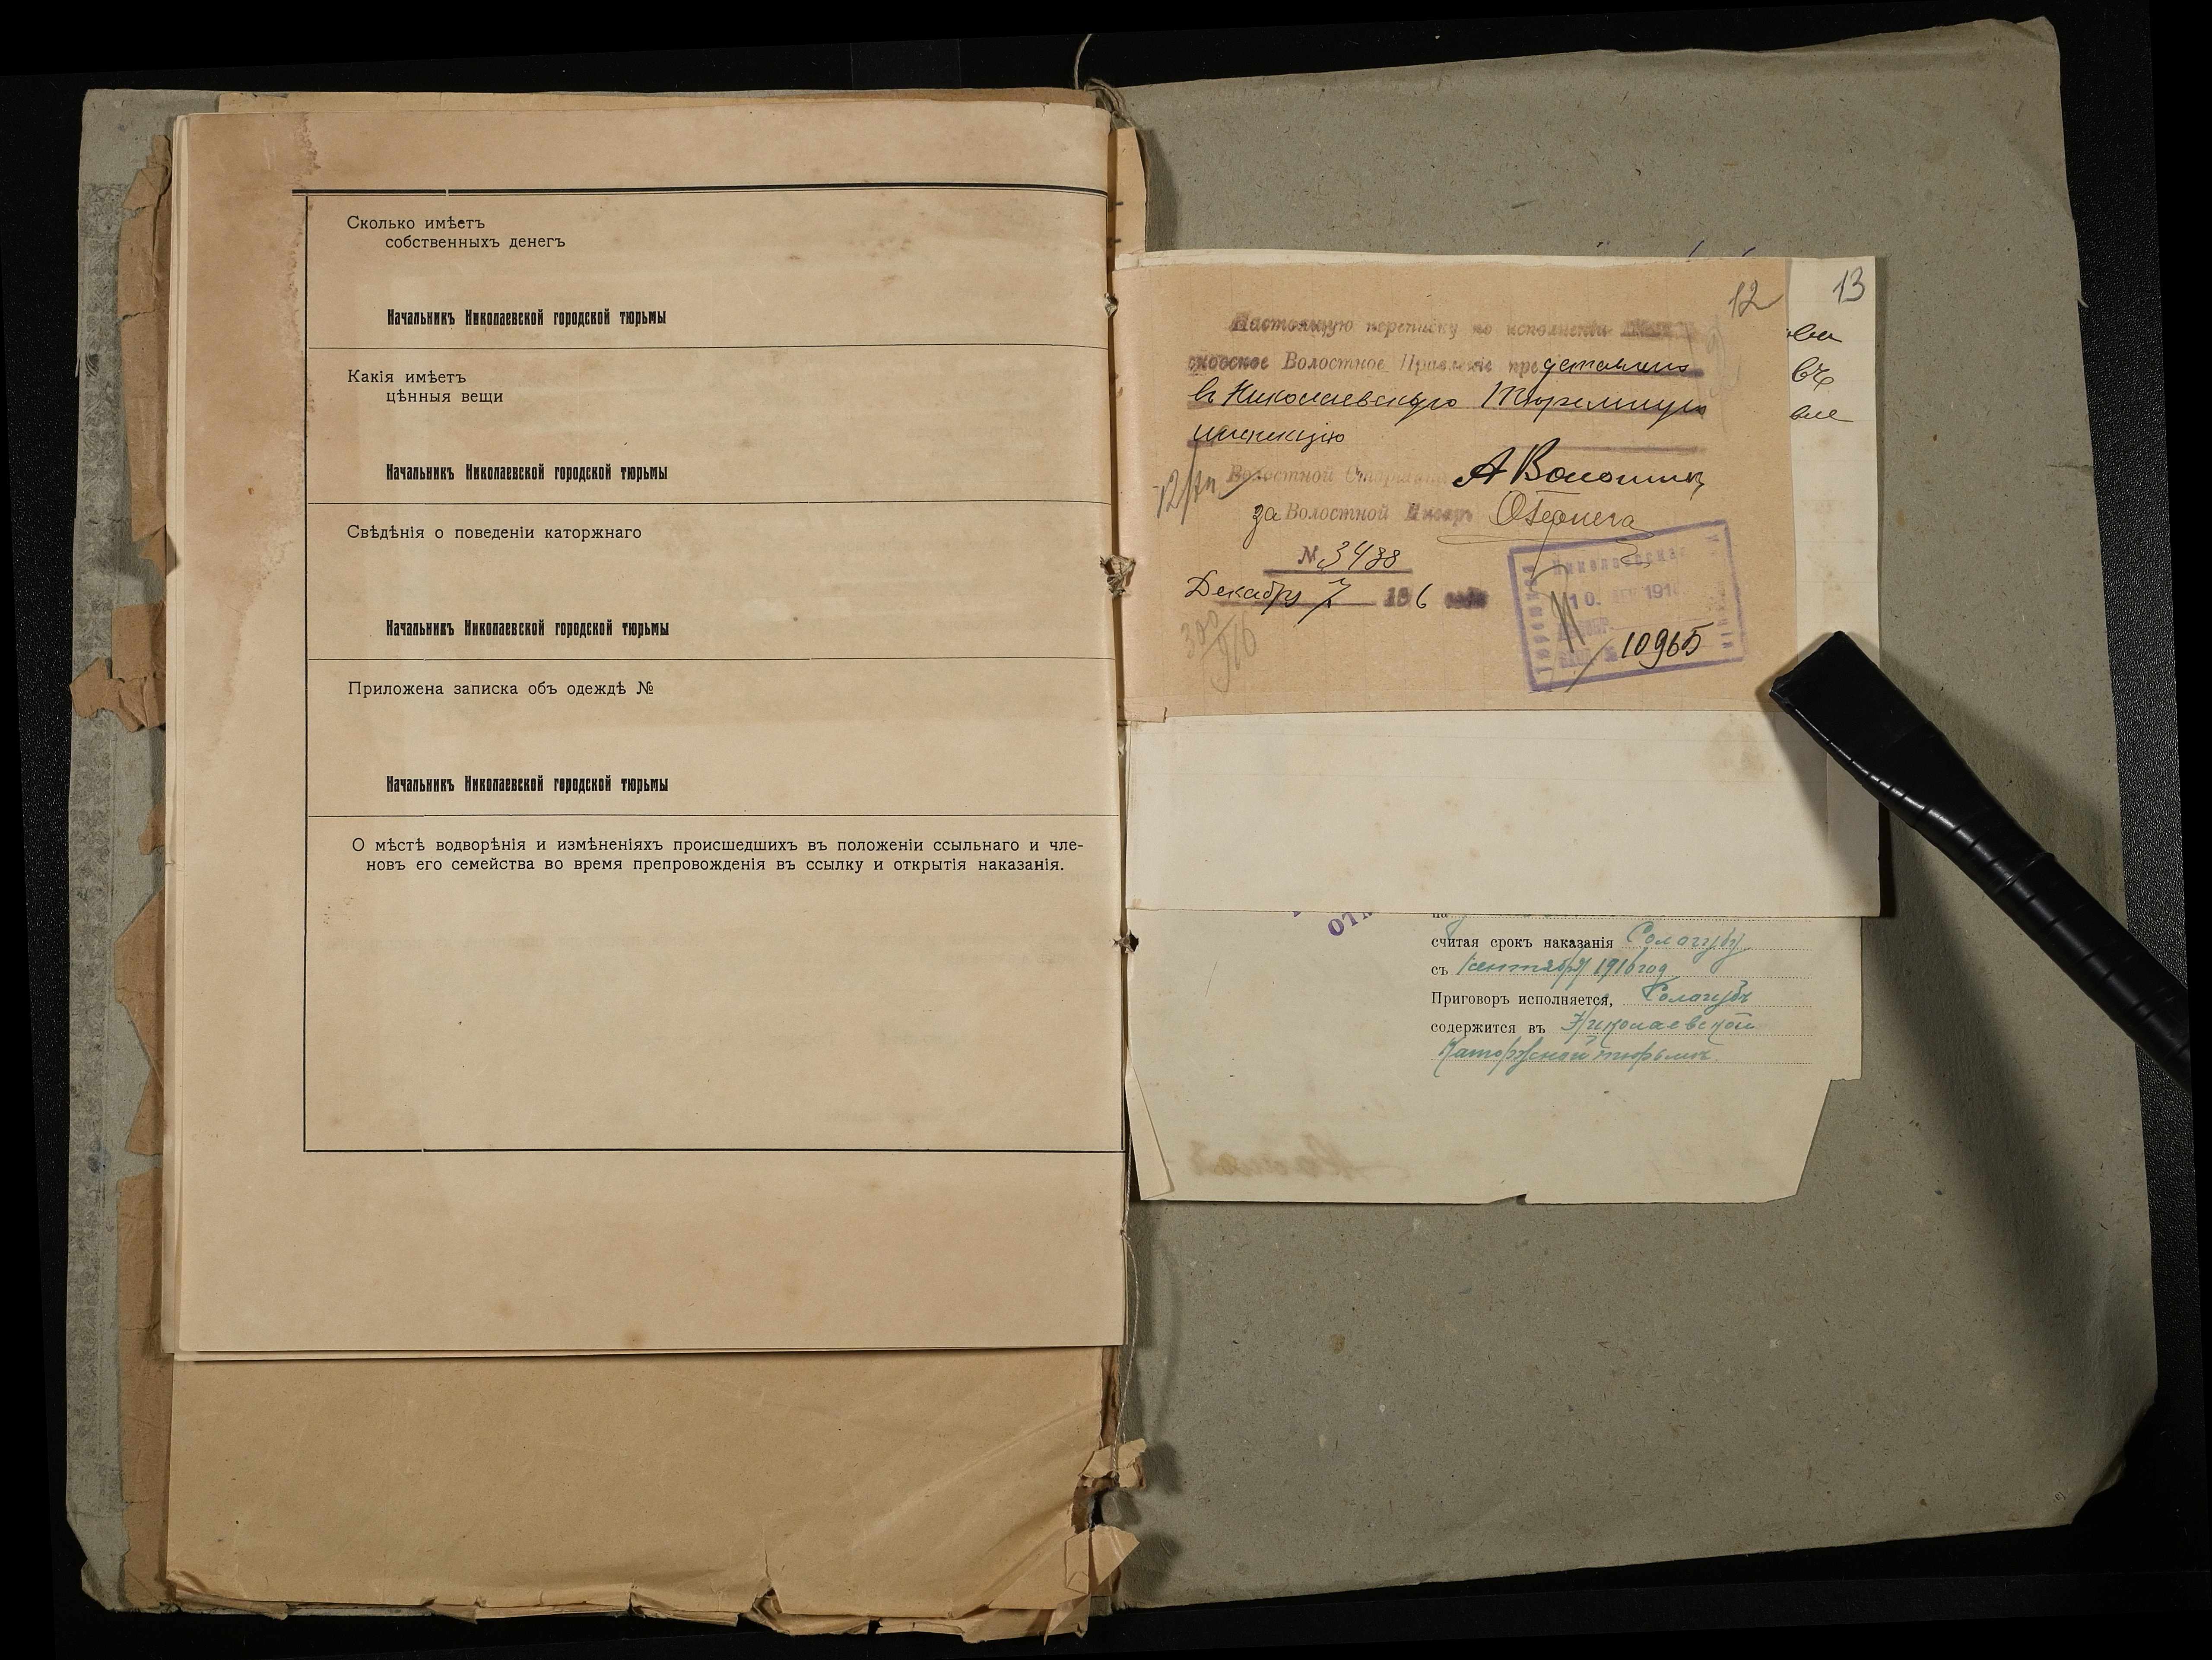 Сколько имѣетъ
собственныхъ денегъ
Начальникъ Николаевской городской тюрьмы
Какія имѣетъ
цѣнныя вещи
Начальникъ Николаевской городской тюрьмы
Свѣдѣнія о поведеніи каторжнаго
Начальникъ Николаевской городской тюрьмы
Приложена записка объ одеждѣ №
Начальникъ Николаевской городской тюрьмы
О мѣстѣ водворѣнія и измѣненіяхъ происшедшихъ въ положеніи ссыльнаго и чле-
новъ его семейства во время препровожденія въ ссылку и открытія наказанія.
12
13
Настоящую переписку по исполненіи
Волостное Правленіе представляетъ
въ Николаевскую Тюремную
инспекцію
Волостной Старшина А Волошинъ
за Волостной Писарь
№ 3488
Декабря 7 1916
Николаевская
10. ДЕК 191
10965
считая срокъ наказанія Сологубу
съ 1 сентября 1916 год
Приговоръ исполняется, Сологубъ
содержится въ Николаевской
Каторжной тюрьмѣ.